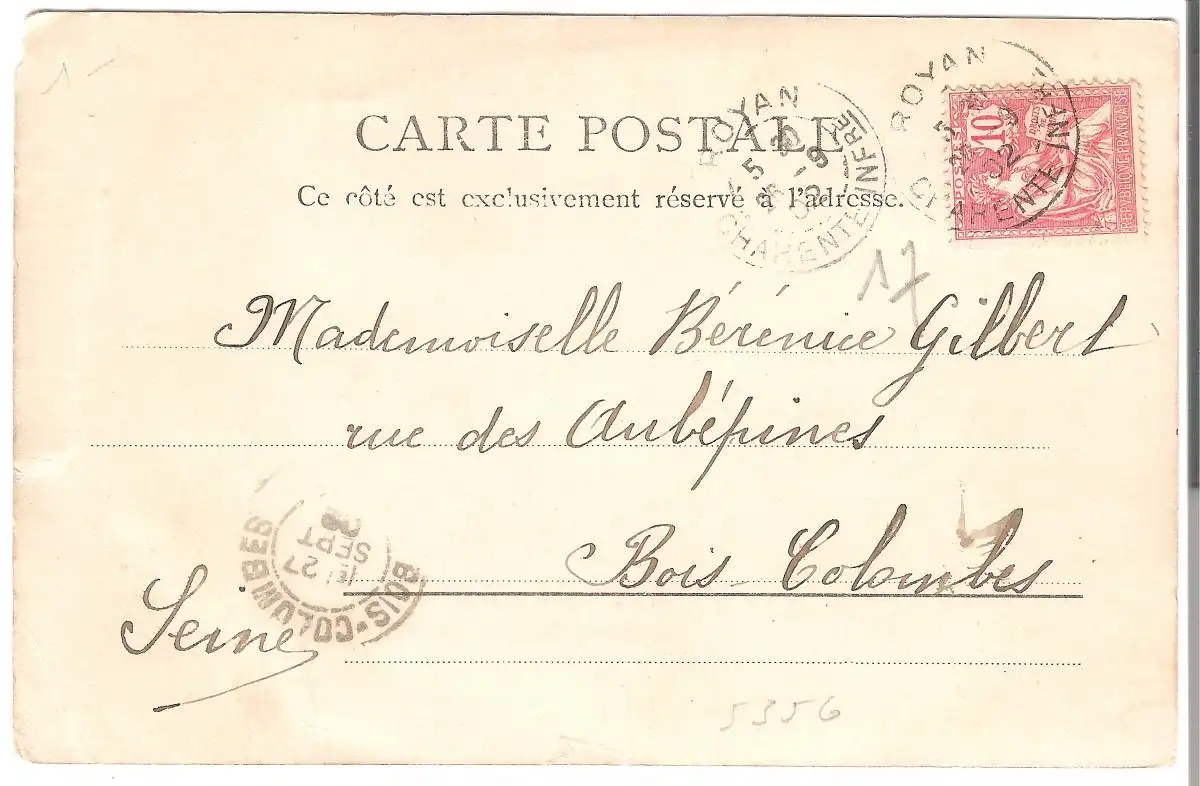 1-
CARTE POSTALE
Ce côté est exclusivement réservé à l'adresse.
ROYAN
5 30
26 - 9
02
CHARENTE INFRE
ROYAN
5 30
26 9
02
CHARENTE INFRE
POSTES
10
REPUBLIQUE FRANCAISE
17
Mademoiselle Bérénice Gilbert
rue des Aubépines
Bois-Colombes
Seine
BOIS-COLOMBES
27
SEPT
5356